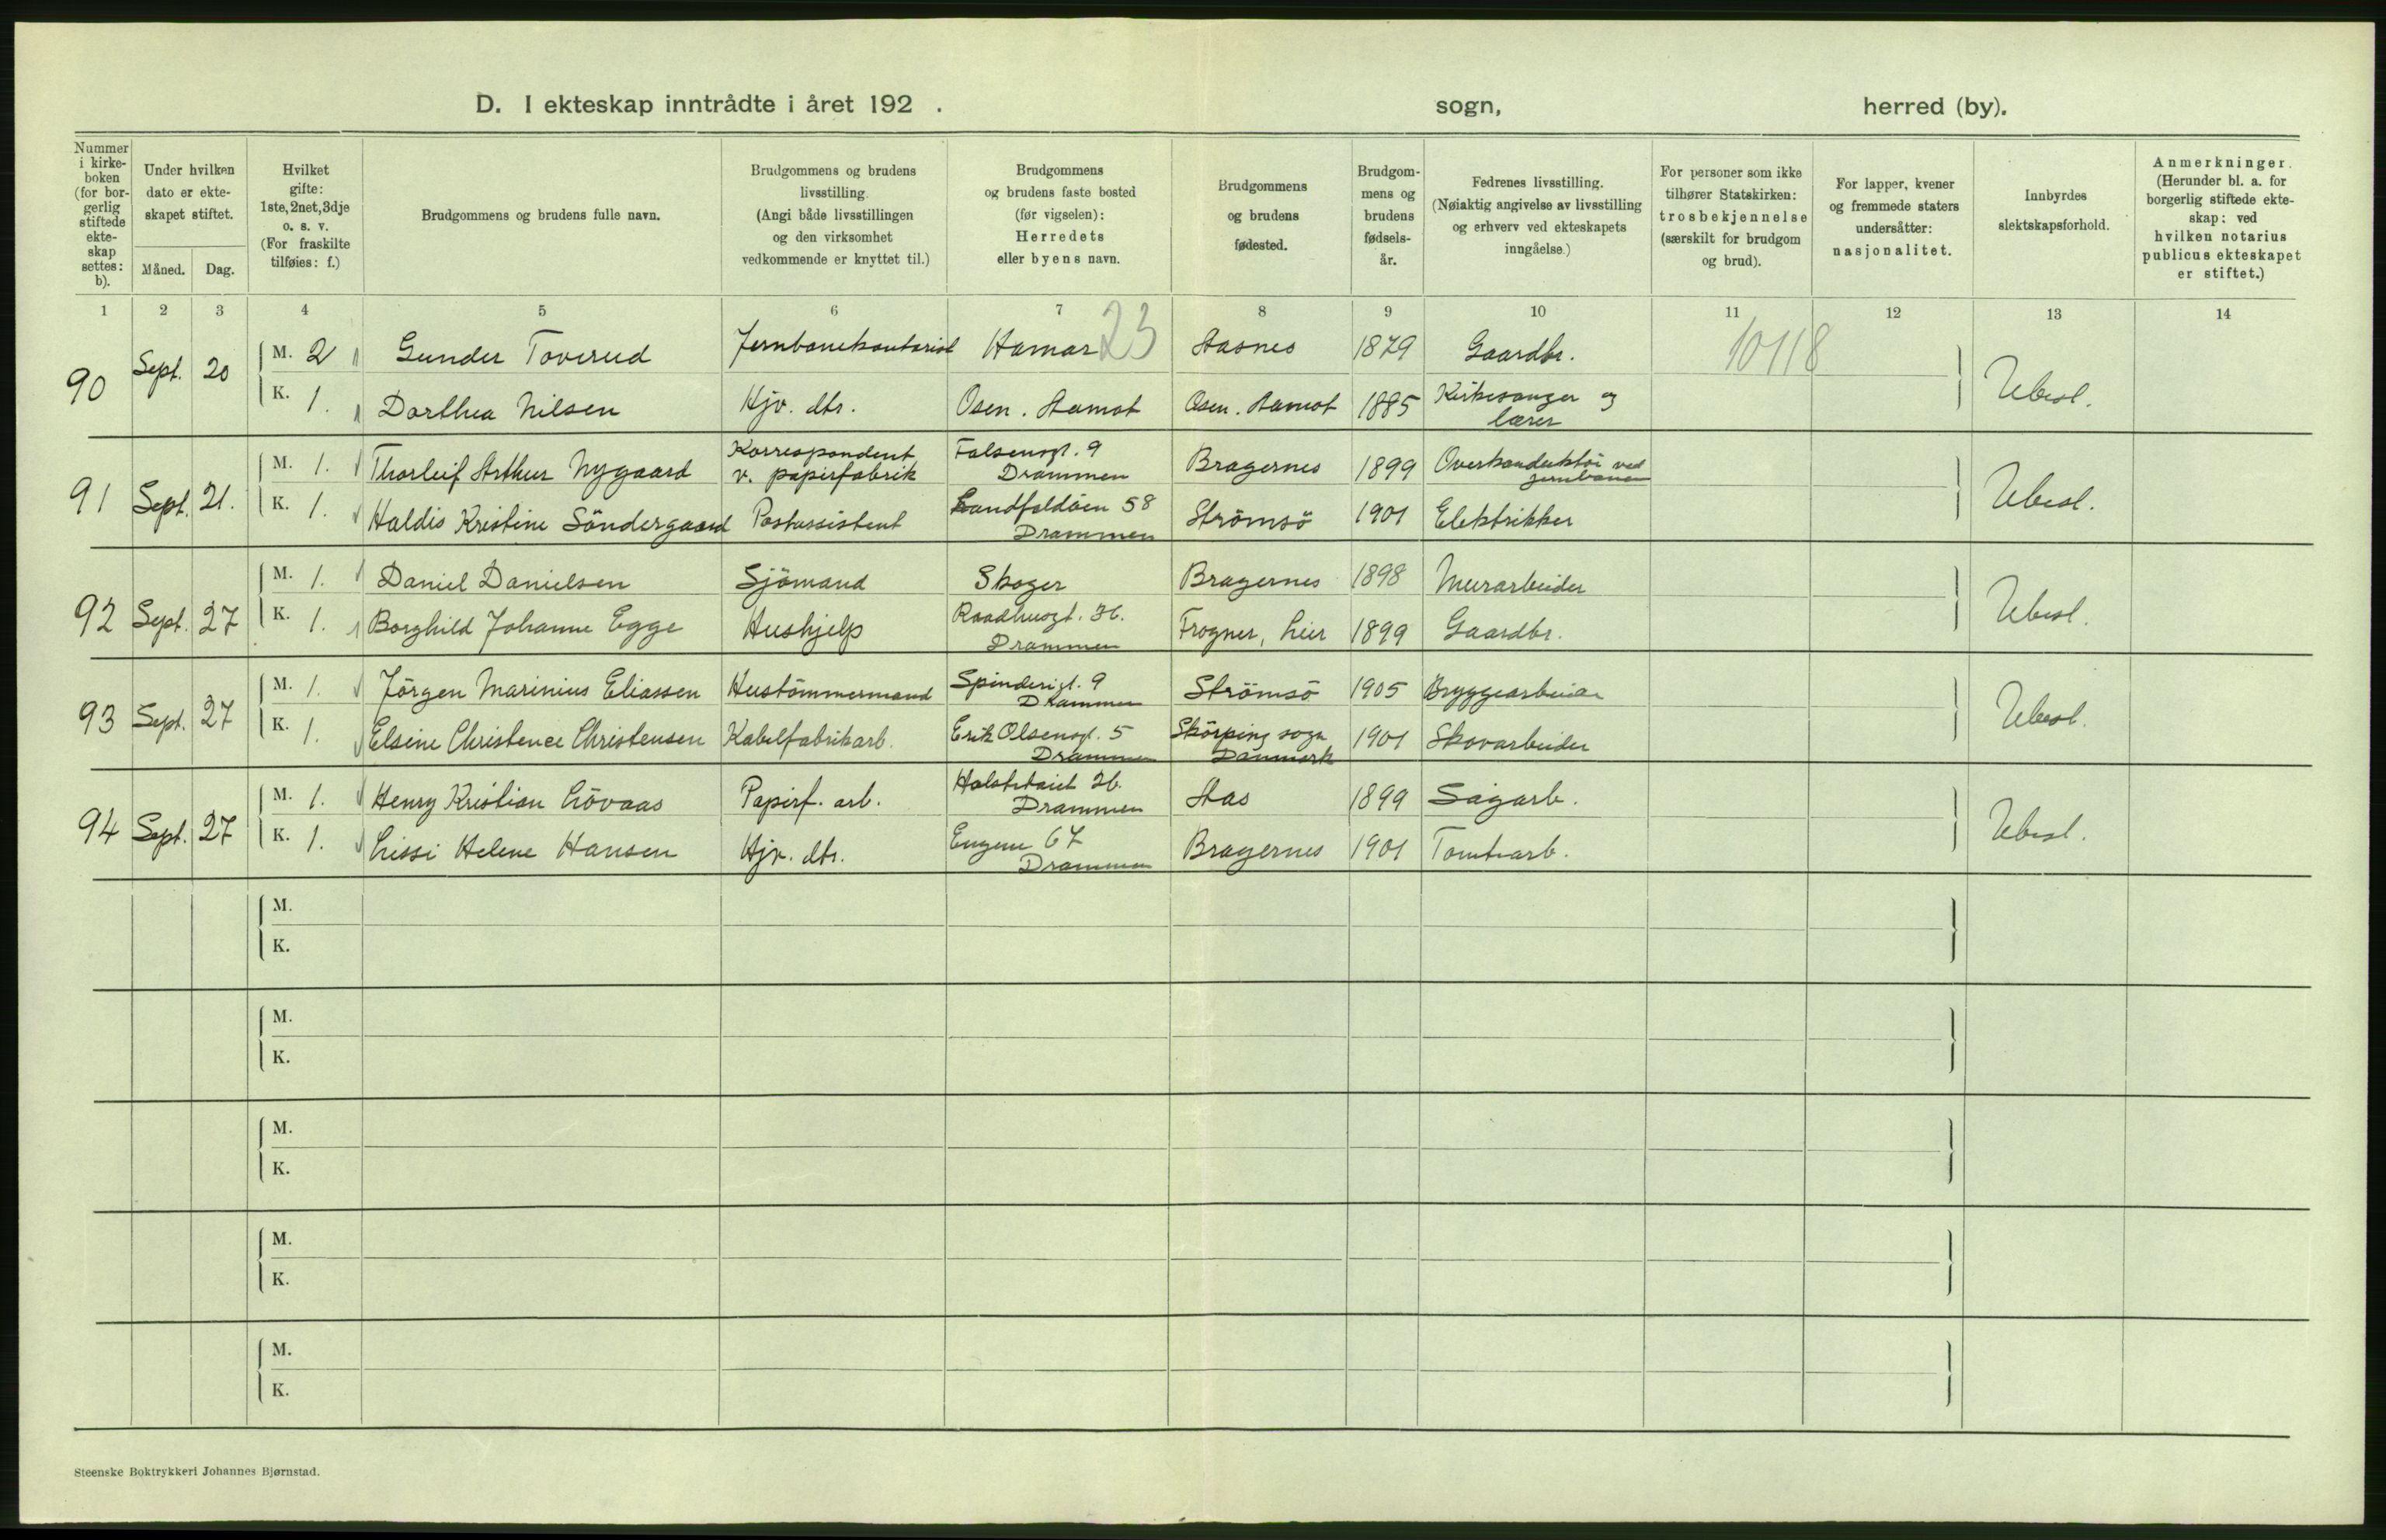 D. I ekteskap inntrådte i året 192 . sogn, herred (by).
Nummer i kirkeboken (for borgerlig stiftede ekteskap settes: b).
Under hvilken dato er ekteskapet stiftet.
Måned. Dag.
Hvilket gifte: 1ste, 2net, 3dje o. s. v. (For fraskilte tilføies: f.)
Brudgommens og brudens fulle navn.
Brudgommens og brudens livsstilling. (Angi både livsstillingen og den virksomhet vedkommende er knyttet til.)
Brudgommens og brudens faste bosted (før vigselen): Herredets eller byens navn.
Brudgommens og brudens fødested.
Brudgommens og brudens fødselsår.
Fedrenes livsstilling. (Nøiaktig angivelse av livsstilling og erhverv ved ekteskapets inngåelse.)
For personer som ikke tilhører Statskirken: trosbekjennelse (særskilt for brudgom og brud).
For lapper, kvener og fremmede staters undersåtter: nasjonalitet.
Innbyrdes slektskapsforhold.
Anmerkninger. (Herunder bl. a. for borgerlig stiftede ekteskap: ved hvilken notarius publicus ekteskapet er stiftet.)
1 2 3 4 5 6 7 8 9 10 11 12 13 14
23 10118
90 Sept. 20 M. 2 Gunder Toverud Jernbanekontorist Hamar Aasnes 1879 Gaardbr.
K. 1. Dorthea Nilsen Hjv. dtr. Osen. Aamot Osen. Aamot 1885 Kirkesanger og lærer Ubesl.
91 Sept. 21. M. 1. Thorleif Arthur Nygaard Korrespondent v. papirfabrik Falsensgt. 9 Drammen Bragernes 1899 Overkonduktör ved jernbanen
K. 1. Haldis Kristine Söndergaard Postassistent Landfaldöen 58 Drammen Strömsö 1901 Elektrikker Ubesl.
92 Sept. 27 M. 1. Daniel Danielsen Sjömand Skoger Bragernes 1898 Murarbeider
K. 1. Borghild Johanne Egge Hushjelp Raadhusgt. 36. Drammen Frogner, Lier 1899 Gaardbr. Ubesl.
93 Sept. 27 M. 1. Jörgen Marinius Eliassen Hustömmermand Spinderigt. 9 Drammen Strömsö 1905 Bryggearbeider
K. 1. Elsine Christence Christensen Kabelfabrikarb. Erik Olsensgt. 5 Drammen Skörping sogn Danmark 1901 Skovarbeider Ubesl.
94 Sept. 27 M. 1. Henry Kristian Lövaas Papirf. arb. 26. Drammen Aas 1899 Sagarb.
K. 1. Lissi Helene Hansen Hjv. dtr. Engene 67 Drammen Bragernes 1901 Tomtearb. Ubesl.
M.
K.
M.
K.
M.
K.
M.
K.
M.
K.
Steenske Boktrykkeri Johannes Bjørnstad.